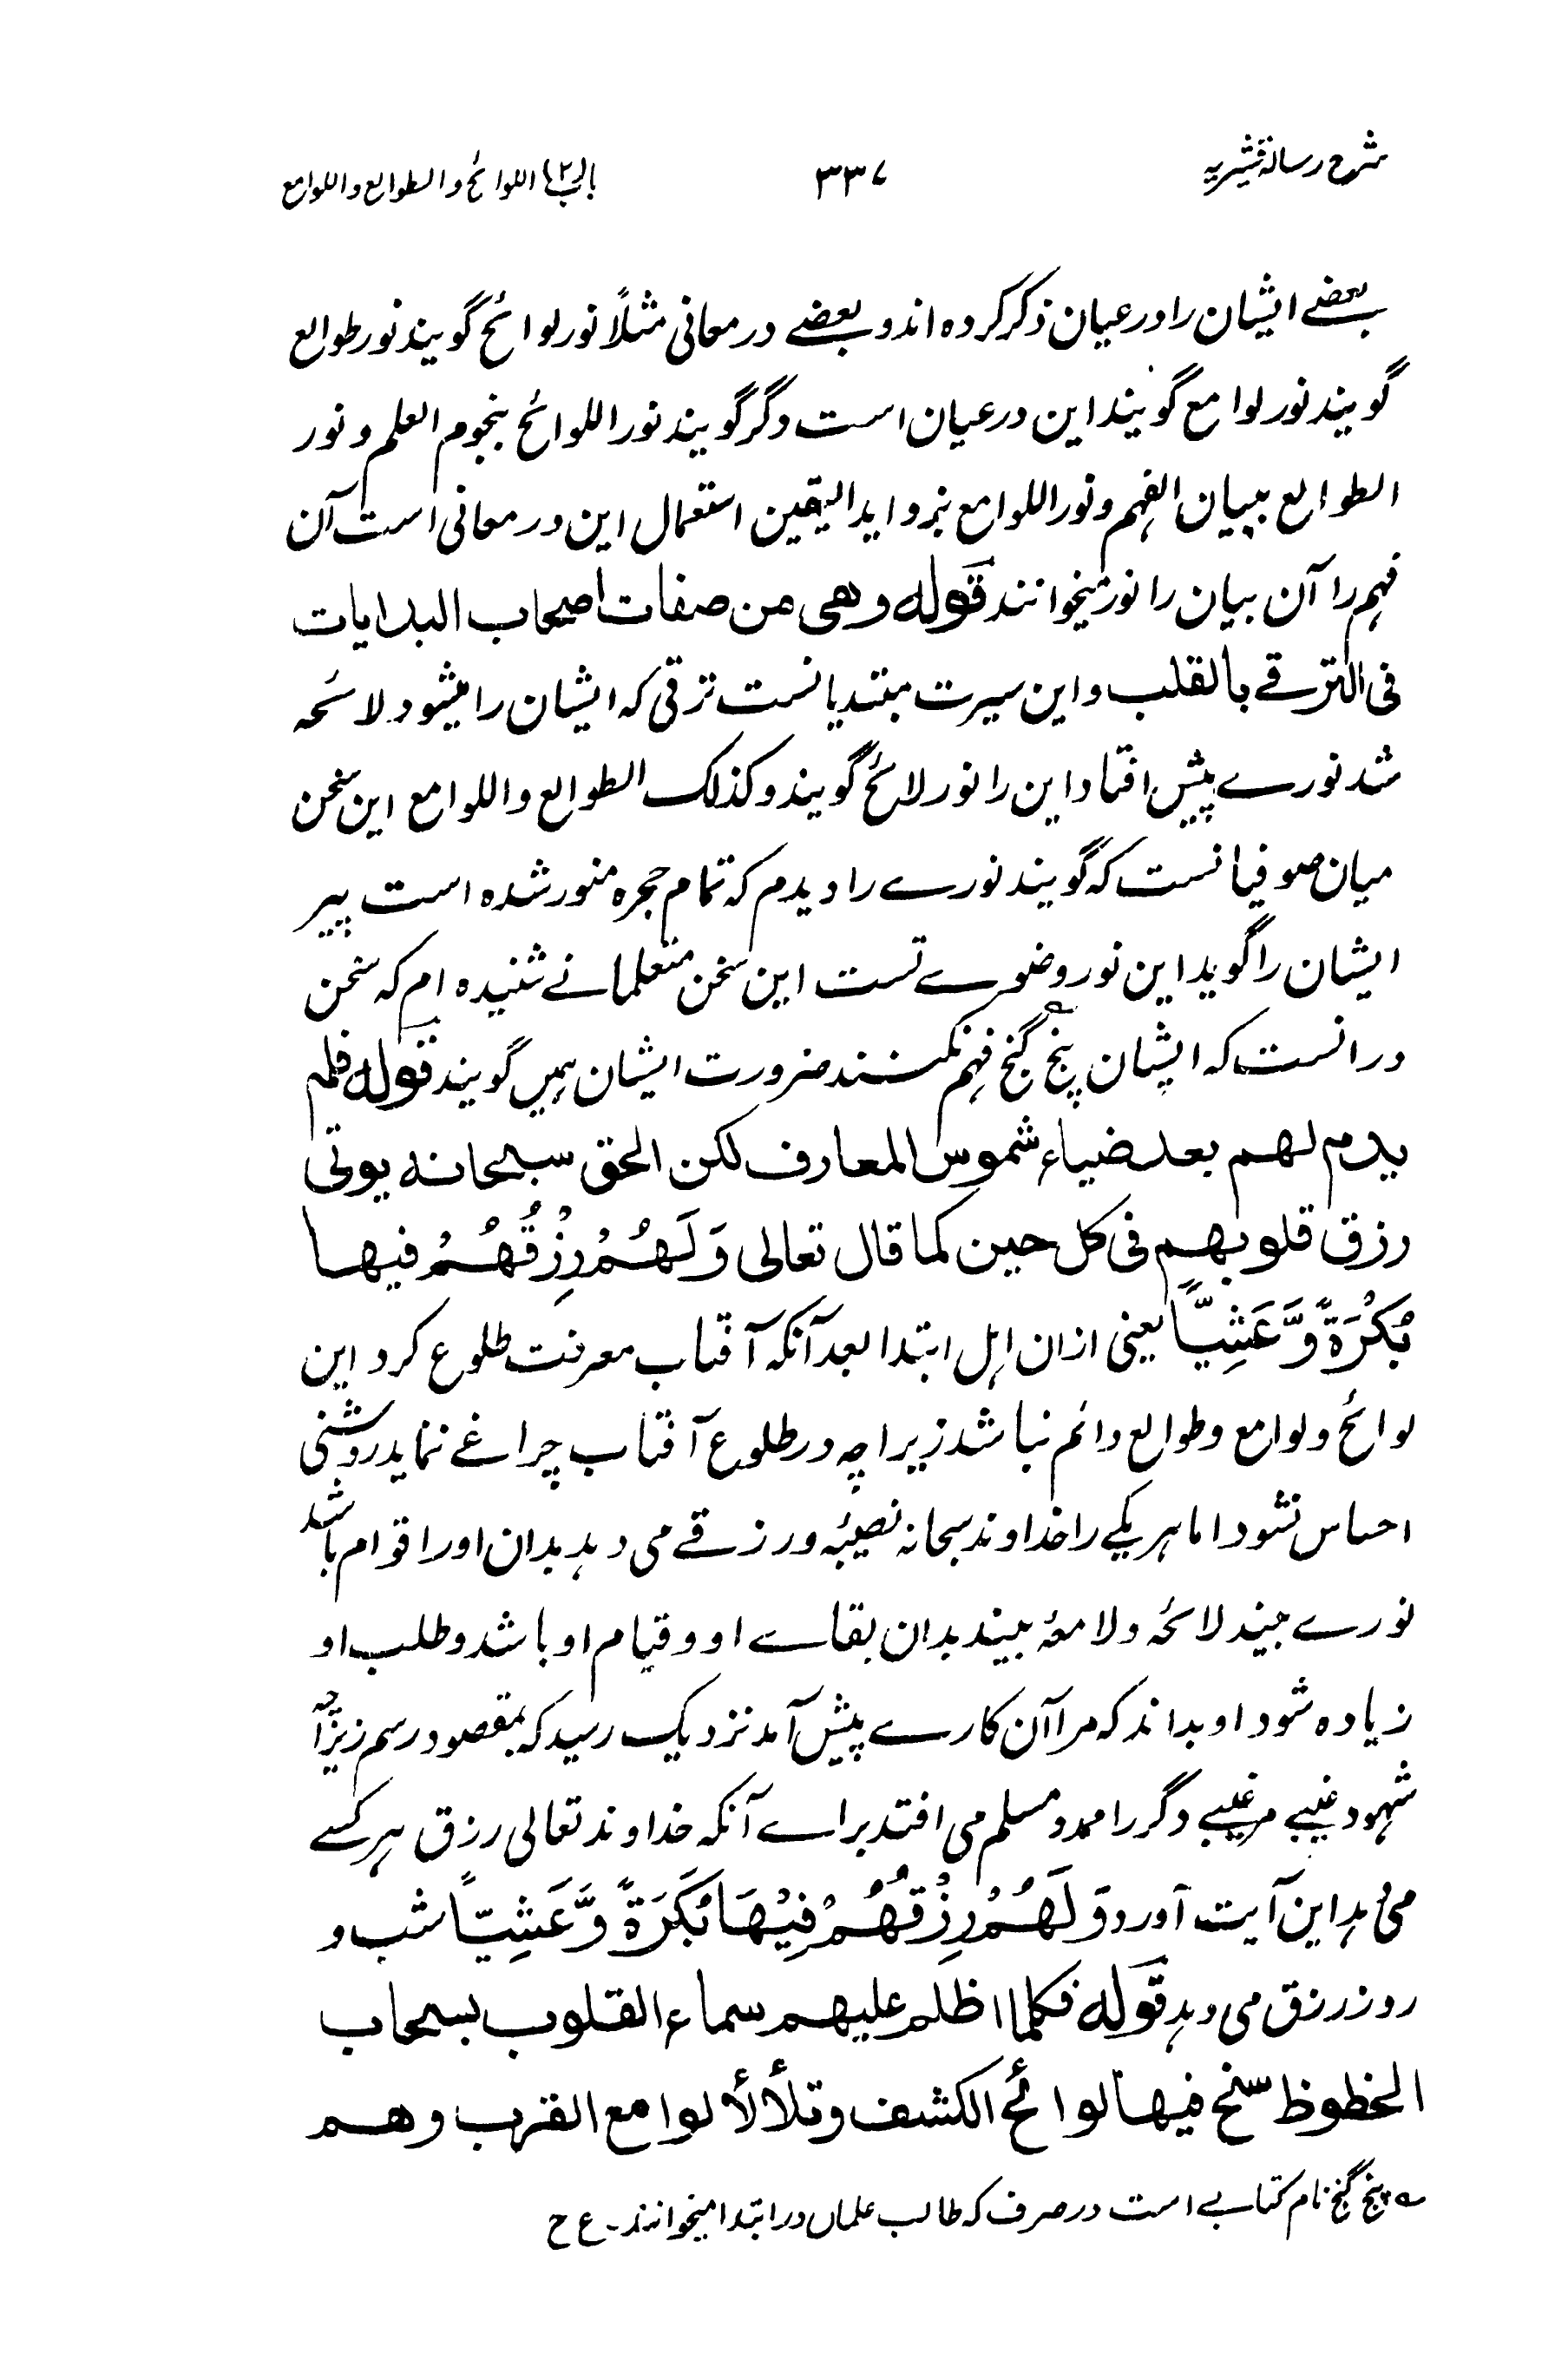 شرح رسالۂ قشیریہ ۳۳۷ باب (۲۱) اللوائح والطوالع واللوامع
بعضے ایشان را در عیان ذکر کردہ اند و بعضے در معانی مثلاً نور لوائح گویند نور طوالع
گویند نور لوامع گویند این در عیان است وگر گویند نور اللوائح بنجوم العلم و نور
الطوالع ببیان الفہم و نور اللوامع بزواید الیقین استعمال این در معانی است آن
فہم را آن بیان را نور میخوانند قولہ وھی من صفات اصحاب البدایات
فی الترقے بالقلب و این سیرت مبتدیانست ترقی کہ ایشان را میشود لائحہ
شد نورے پیش افتاد این را نور لائح گویند وکذلک الطوالع واللوامع این سخن
میان صوفیانست کہ گویند نورے را دیدم کہ تمام حجرہ منور شدہ است پیر
ایشان را گوید این نور وضوے تست این سخن متعلمانے شنیدہ ام کہ سخن
درانست کہ ایشان پنج گنج فہم نکنند ضرورت ایشان ہمیں گویند قولہ فلم
یدم لھم بعد ضیاء شموس المعارف لکن الحق سبحانہ یوتی
رزق قلوبھم فی کل حین کما قال تعالی وَلَھُمْ رِزْقُھُمْ فیھا
بُکْرَةً وَّعَشِیًّا یعنی ازان اہل ابتدا بعد آنکہ آفتاب معرفت طلوع کرد این
لوائح و لوامع و طوالع دائم نباشد زیراچہ در طلوع آفتاب چراغے ننماید روشنی
احساس نشود اما ہر یکے را خداوند سبحانہ نصیبۂ و رزقے می دہد بدان او را قوام باشد
نورے بیند لائحۂ و لامعۂ بیند بدان بقاے او و قیام او باشد و طلب او
زیادہ شود او بداند کہ مرا آن کارے پیش آمد نزدیک رسید کہ بمقصود رسم زیراچہ
شہود غیبے مر غیبے دگر را ممد و مسلم می افتد براے آنکہ خداوند تعالی رزق ہر کسے
می دہد این آیت آورد وَلَھُمْ رِزْقُھُمْ فِیْھَا بُکْرَةً وَّعَشِیًّا شب و
روز رزق می دہد قولہ فکلما اظلم علیھم سماء القلوب بسحاب
الحظوظ سنح فیھا لوائح الکشف وتلألأ لوامع القرب وھم
ے پنج گنج نام کتابے است در صرف کہ طالب علماں در ابتدا میخوانند۔ ع ح